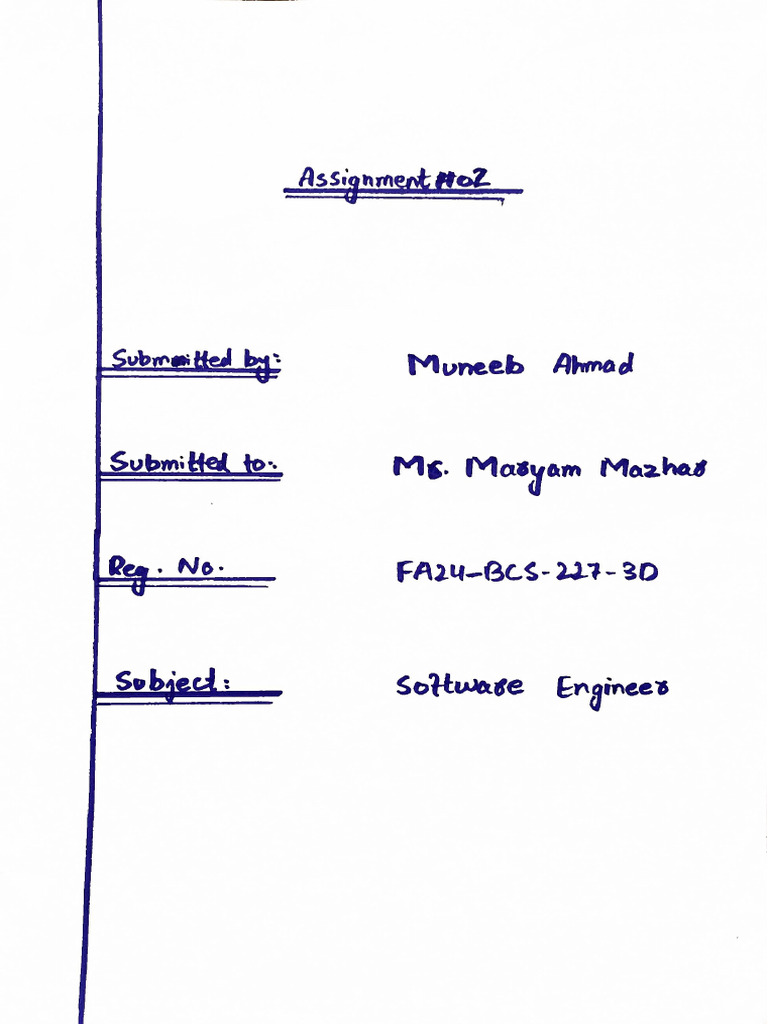 Assignment #02
Submmitted by: Muneeb Ahmad
Submitted to: Ms. Maryam Mazhar
Reg. No. FA24-BCS-227-3D
Subject: Software Engineer